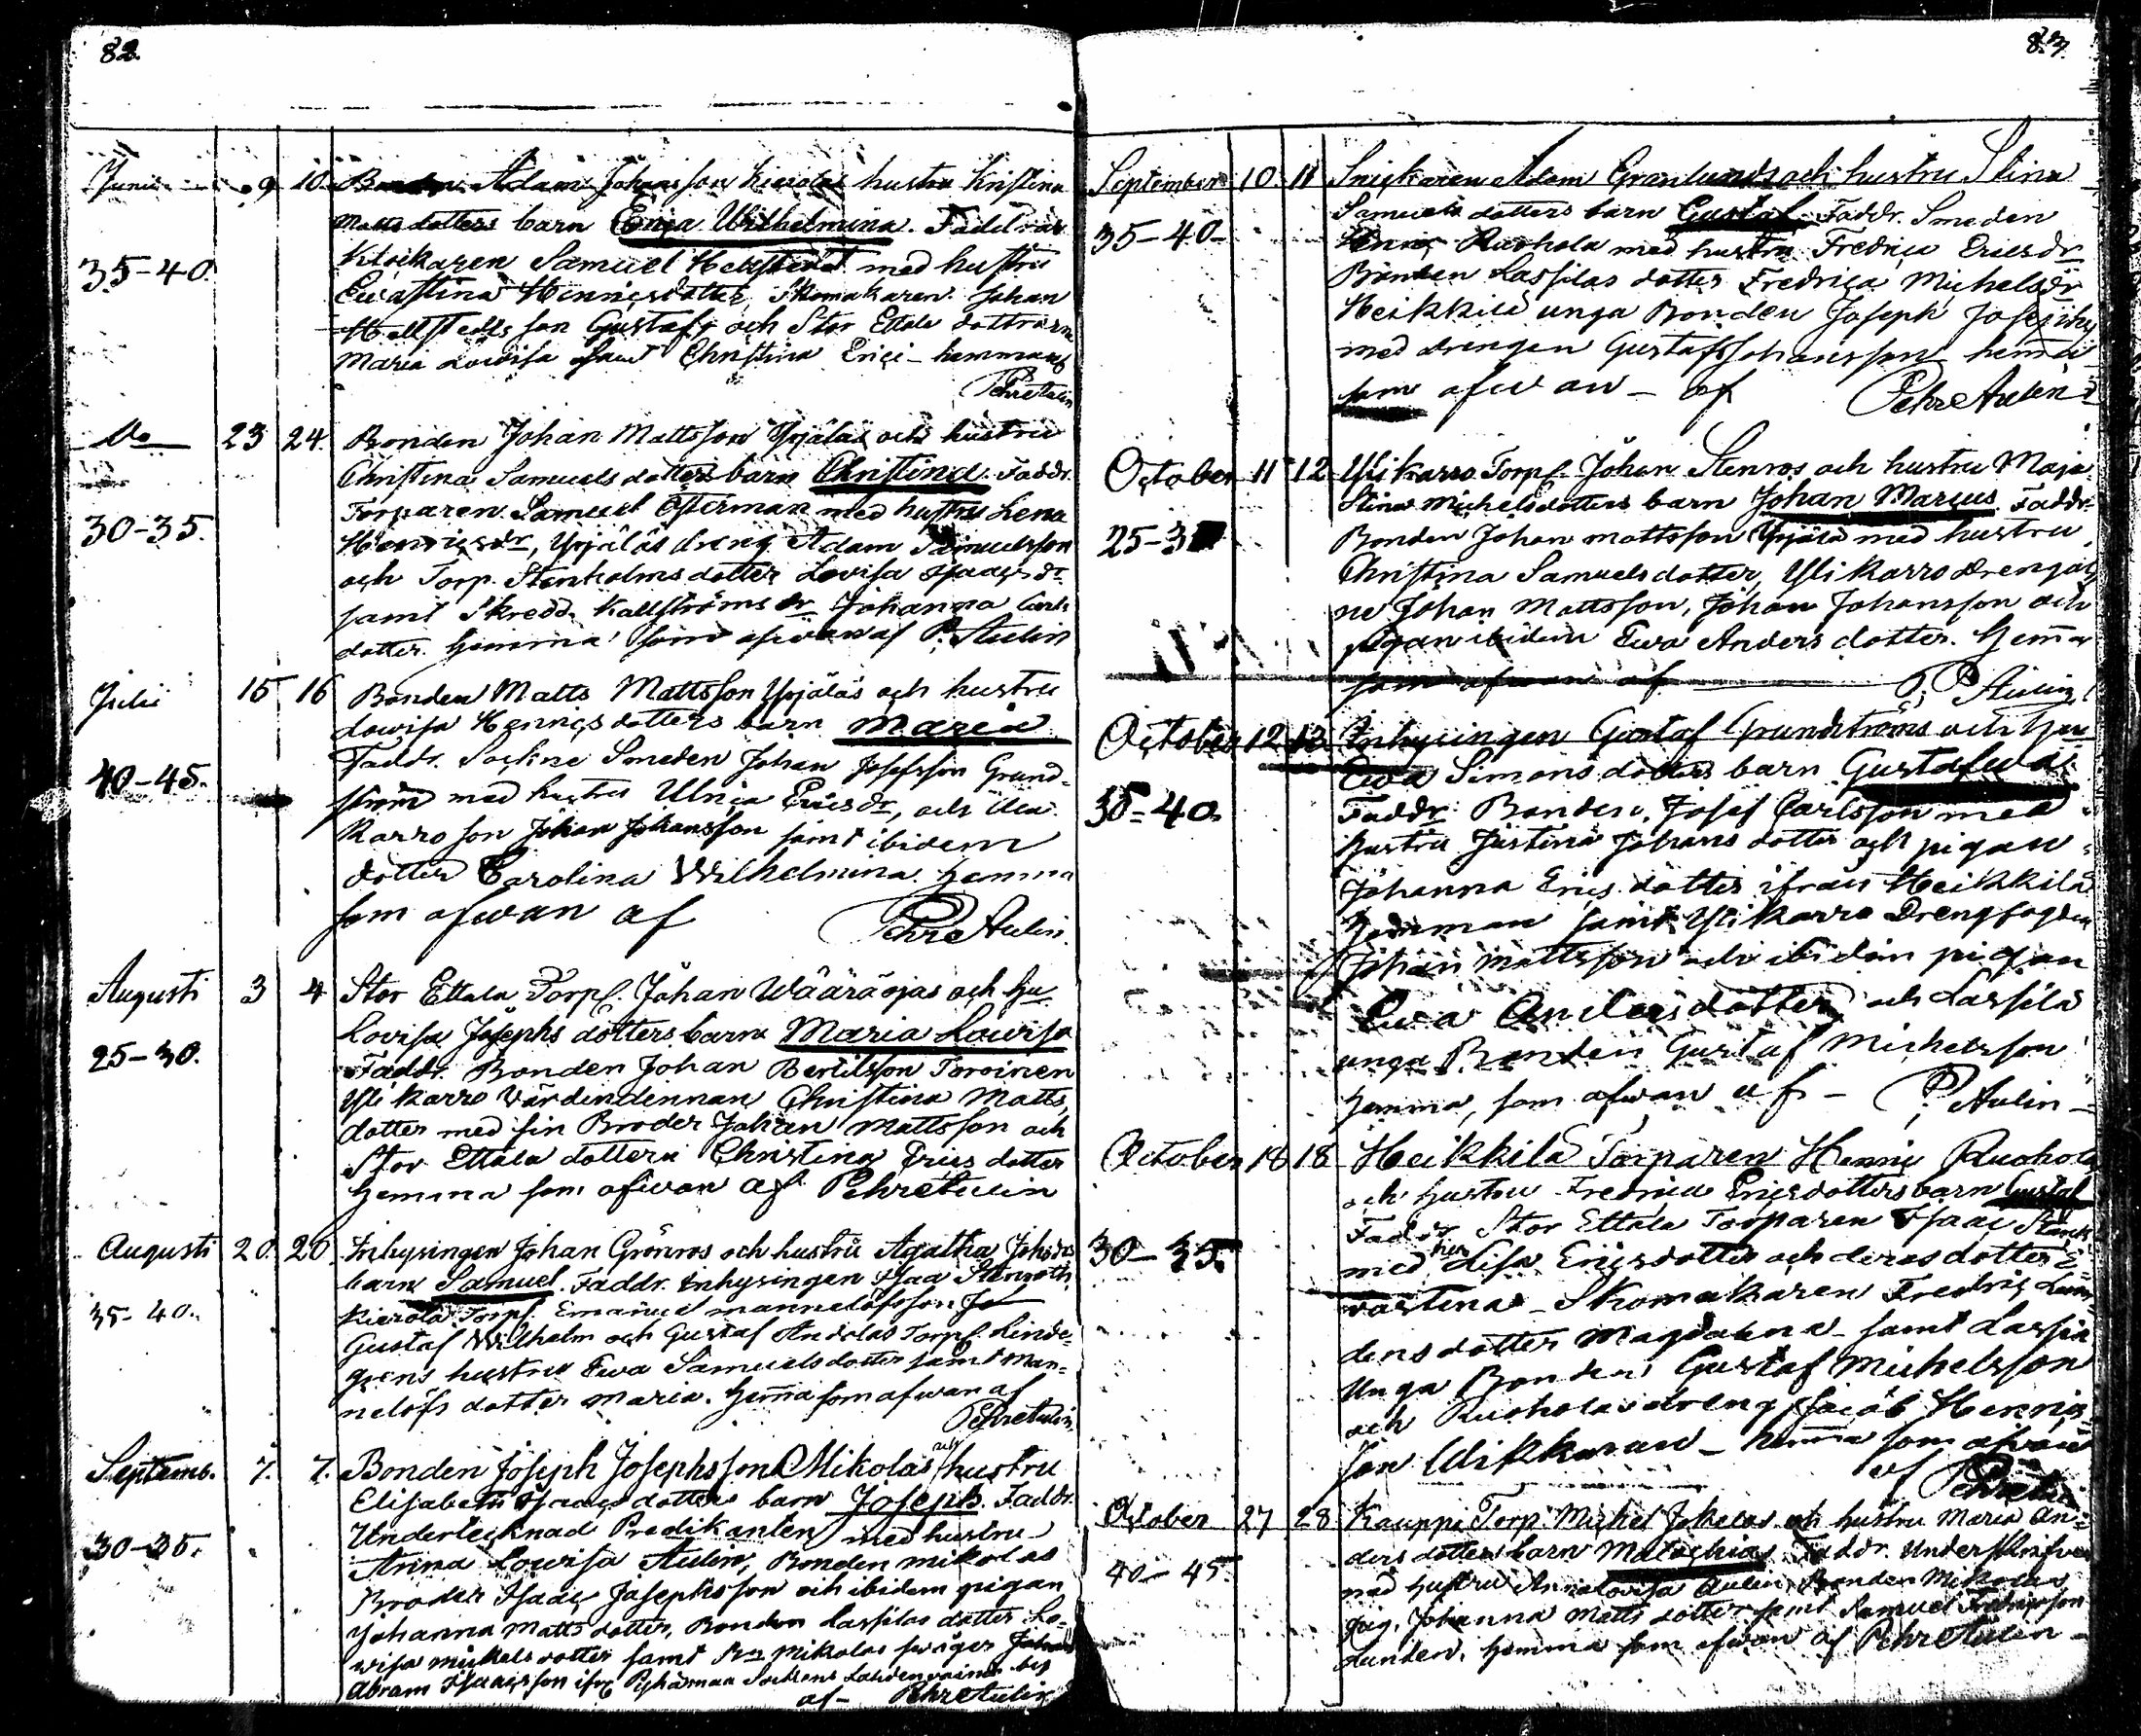 82.
Junii 9 10. Bonden Adam Johansson Kierolas hustru Kristina
Matts dotters barn Erica Wilhelmina. Faddrar
35-40. Klockaren Samuel Hellstedt med hustru
Ewastina Henricsdotter, Skomakaren Johan
Hellstedts son Gustaf, och Stor Ettala dottrarna
Maria Lowisa samt Christina Erici - hemma af
Pehr Aulin
Do 23 24. Bonden Johan Mattsson Ypjälas och hustru
Christina Samuels dotters barn Christina. Faddr.
30-35. Torparen Samuel Österman med hustru Lena
Henricsdr, Ypjäläs dreng Adam Samuelsson
och Torp. Stenholms dotter Lovisa Isaacsdr
samt Skredd. Kallströms dr Johanna Carls
dotter. hemma som ofwan af P. Aulin
Julii 15 16 Bonden Matts Mattsson Ypjäläs och hustru
Lowisa Henrics dotters barn Maria
Faddr. Sockne Smeden Johan Josefsson Grund-
40-45. ström med hustru Ulrica Ericsdr, och
Karro son Johan Johansson samt ibidem
dotter Carolina Wilhelmina. hemma
som ofwan af Pehr Aulin.
Augusti 3 4 Stor Ettala Torp. Johan Wääräojas och hu
Lovisa Josephs dotters barn Maria Lowisa
25-30. Faddr. Bonden Johan Bertilsson Toroinen
Yli Karro Värdindinnan Christina Matts
dotter med sin Broder Johan Mattsson och
Stor Ettala dottern Christina Erics dotter
hemma som ofwan af Pehr Aulin
Augusti 20. 20. Inhysingen Johan Grönros och hustru Agatha Johsdr
barn Samuel. Faddr. Inhysingen Isaa Stenroth
35-40. Kierola Torp. Emanuel mannelöfsson
Gustaf Wilhelm och Gustaf Andolas Torp. Linde-
grens hustru Ewa Samuelsdotter samt Man-
nelöfs dotter Maria. hemma som ofwan af
Pehr Aulin
Septemb. 7. 7. Bonden Joseph Josephsson Mikolas och hustru
Elisabeth Isaacs dotters barn Joseph. Faddr.
Undertecknad Predikanten med hustru
30-35. Anna Lowisa Aulin, Bonden Mikolas
Broder Isaac Josephsson och ibidem pigan
Johanna Matts dotter, Bonden Lassilas dotter Lo-
wisa Mickels dotter samt Mikolas swåger
Abram Isaacsson
af - Pehr Aulin
83.
September 10. 11 Snickaren Adam Granlunds och hustru Stina
Samuels dotters barn Gustaf Faddr. Smeden
35-40- Henric Ruohola med hustru Fredrica Ericsdr
Bonden Lassilas dotter Fredrica Michelsdr
Heikkilä unga Bonden Joseph
med drengen Gustaf Johansson hemma
som ofwan - af Pehr Aulin
October 11 12 Yli Karro Torp. Johan Stenros och hustru Maja
Stina Michelsdotters barn Johan Marcus. Faddr.
25-3 Bonden Johan Mattsson Ypjälä med hustru
Christina Samuels dotter, Yli Karro drengar
ne Johan Mattsson, Johan Johansson och
pigan ibidem Ewa Anders dotter. hemma
som ofwan af P. Aulin
October 12 13 Inhysingen Gustaf Grundströms och hu
Ewa Simons dotters barn Gustafwa
35-40. Faddr. Bonden Josef Carlsson med
hustru Justina Johans dotter och pigan
Johanna Erics dotter ifrån Heikkilä
hemman samt Yli Karro Drengfogden
Johan Mattsson och ibidem pigan
Ewa Andersdotter och Lassilä
unga Bonden Gustaf Michelsson
hemma, som ofwan af - P. Aulin -
October 18 18 Heikkilä Torparen Henric Ruohola
och hustru Fredrica Ericsdotters barn Gustaf
30-35. Faddr Stor Ettala Torparen Isaac
med hu Lisa Ericsdotter och deras dotter E-
vastina - Skomakaren Fredric Lin-
dens dotter Magdalena - samt Lassila
unga Bonden Gustaf Michelsson
och Ruoholas dreng Jacob Henric-
son - hemma som ofwan
af Pehr Aulin
October 27 28 Kauppi Torp. Michel Jokelas och hustru Maria An-
ders dotters barn Malachias Faddr. Underskrifven
40-45. med hustru Anna Lovisa Aulin, Bonden Mikolas
pig. Johanna Matts dotter samt Samuel Fredricsson
Lunden. hemma som ofwan af Pehr Aulin -